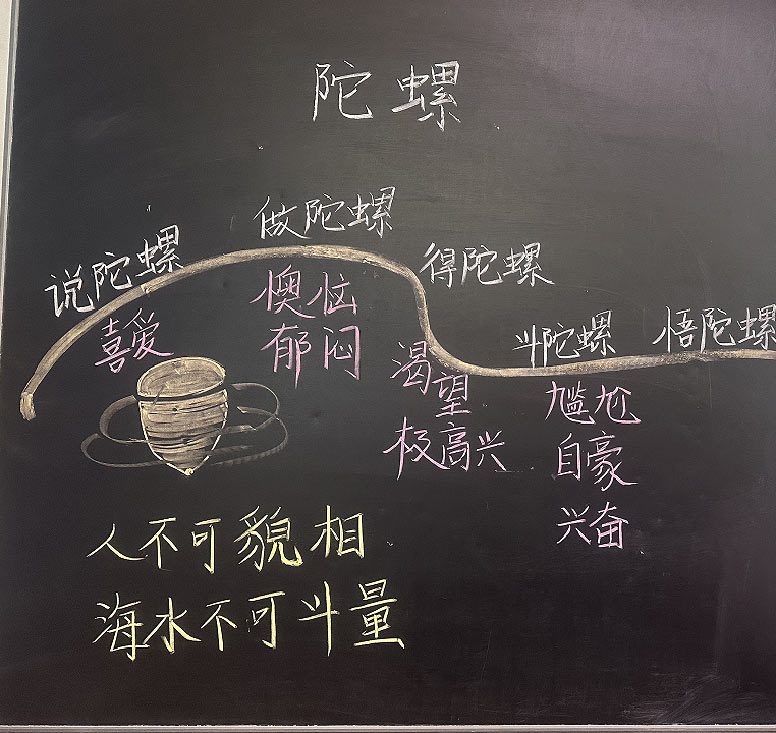 陀螺
说陀螺
做陀螺
得陀螺
斗陀螺
悟陀螺
喜爱
懊恼
郁闷
渴望
极高兴
尴尬
自豪
兴奋
人不可貌相
海水不可斗量